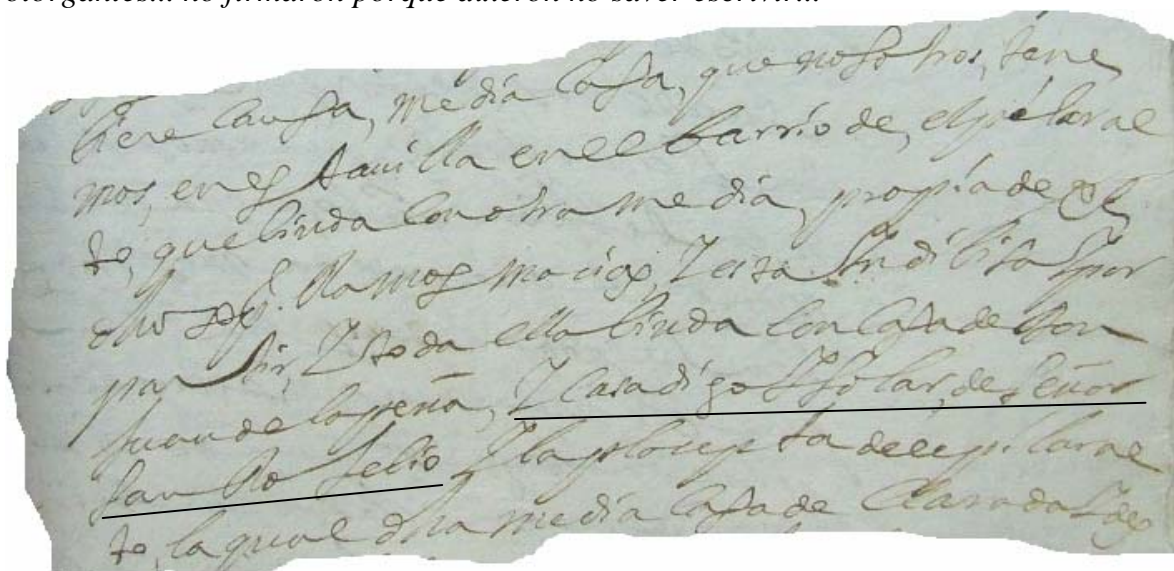 otorgantes... no firmaron porque dixeron no saver escrivir...
tiene Caussa, media Casa, que nosotros, tene
mos, en esta uilla en el barrio de, el pilar al
to, que linda con otra media, propia de
dho Ramos maciaz, Y esta Yndibisa Y por
partir, Y toda ella linda Con Casa de Don
Juan de la peña, Y Casa digo Y solar, de señor
san Ro telio Y la plaça de el pilar al
to, la qual dha media Casa de Clarada